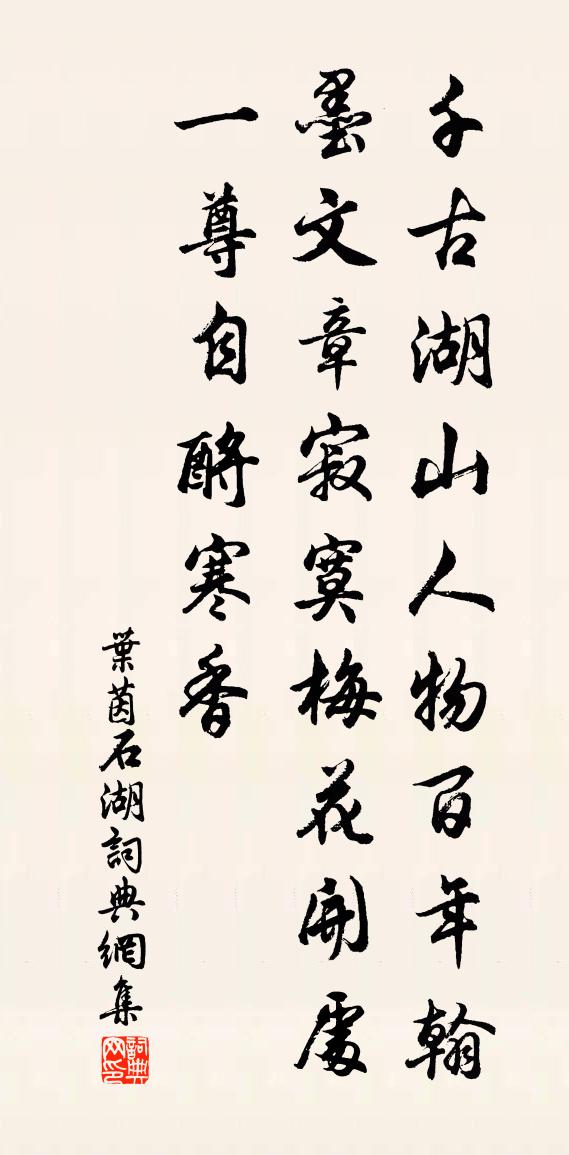 千古湖山人物百年翰
墨文章寂寞梅花開處
一尊自酹寒香
葉茵石湖詞典網集
詞典网印